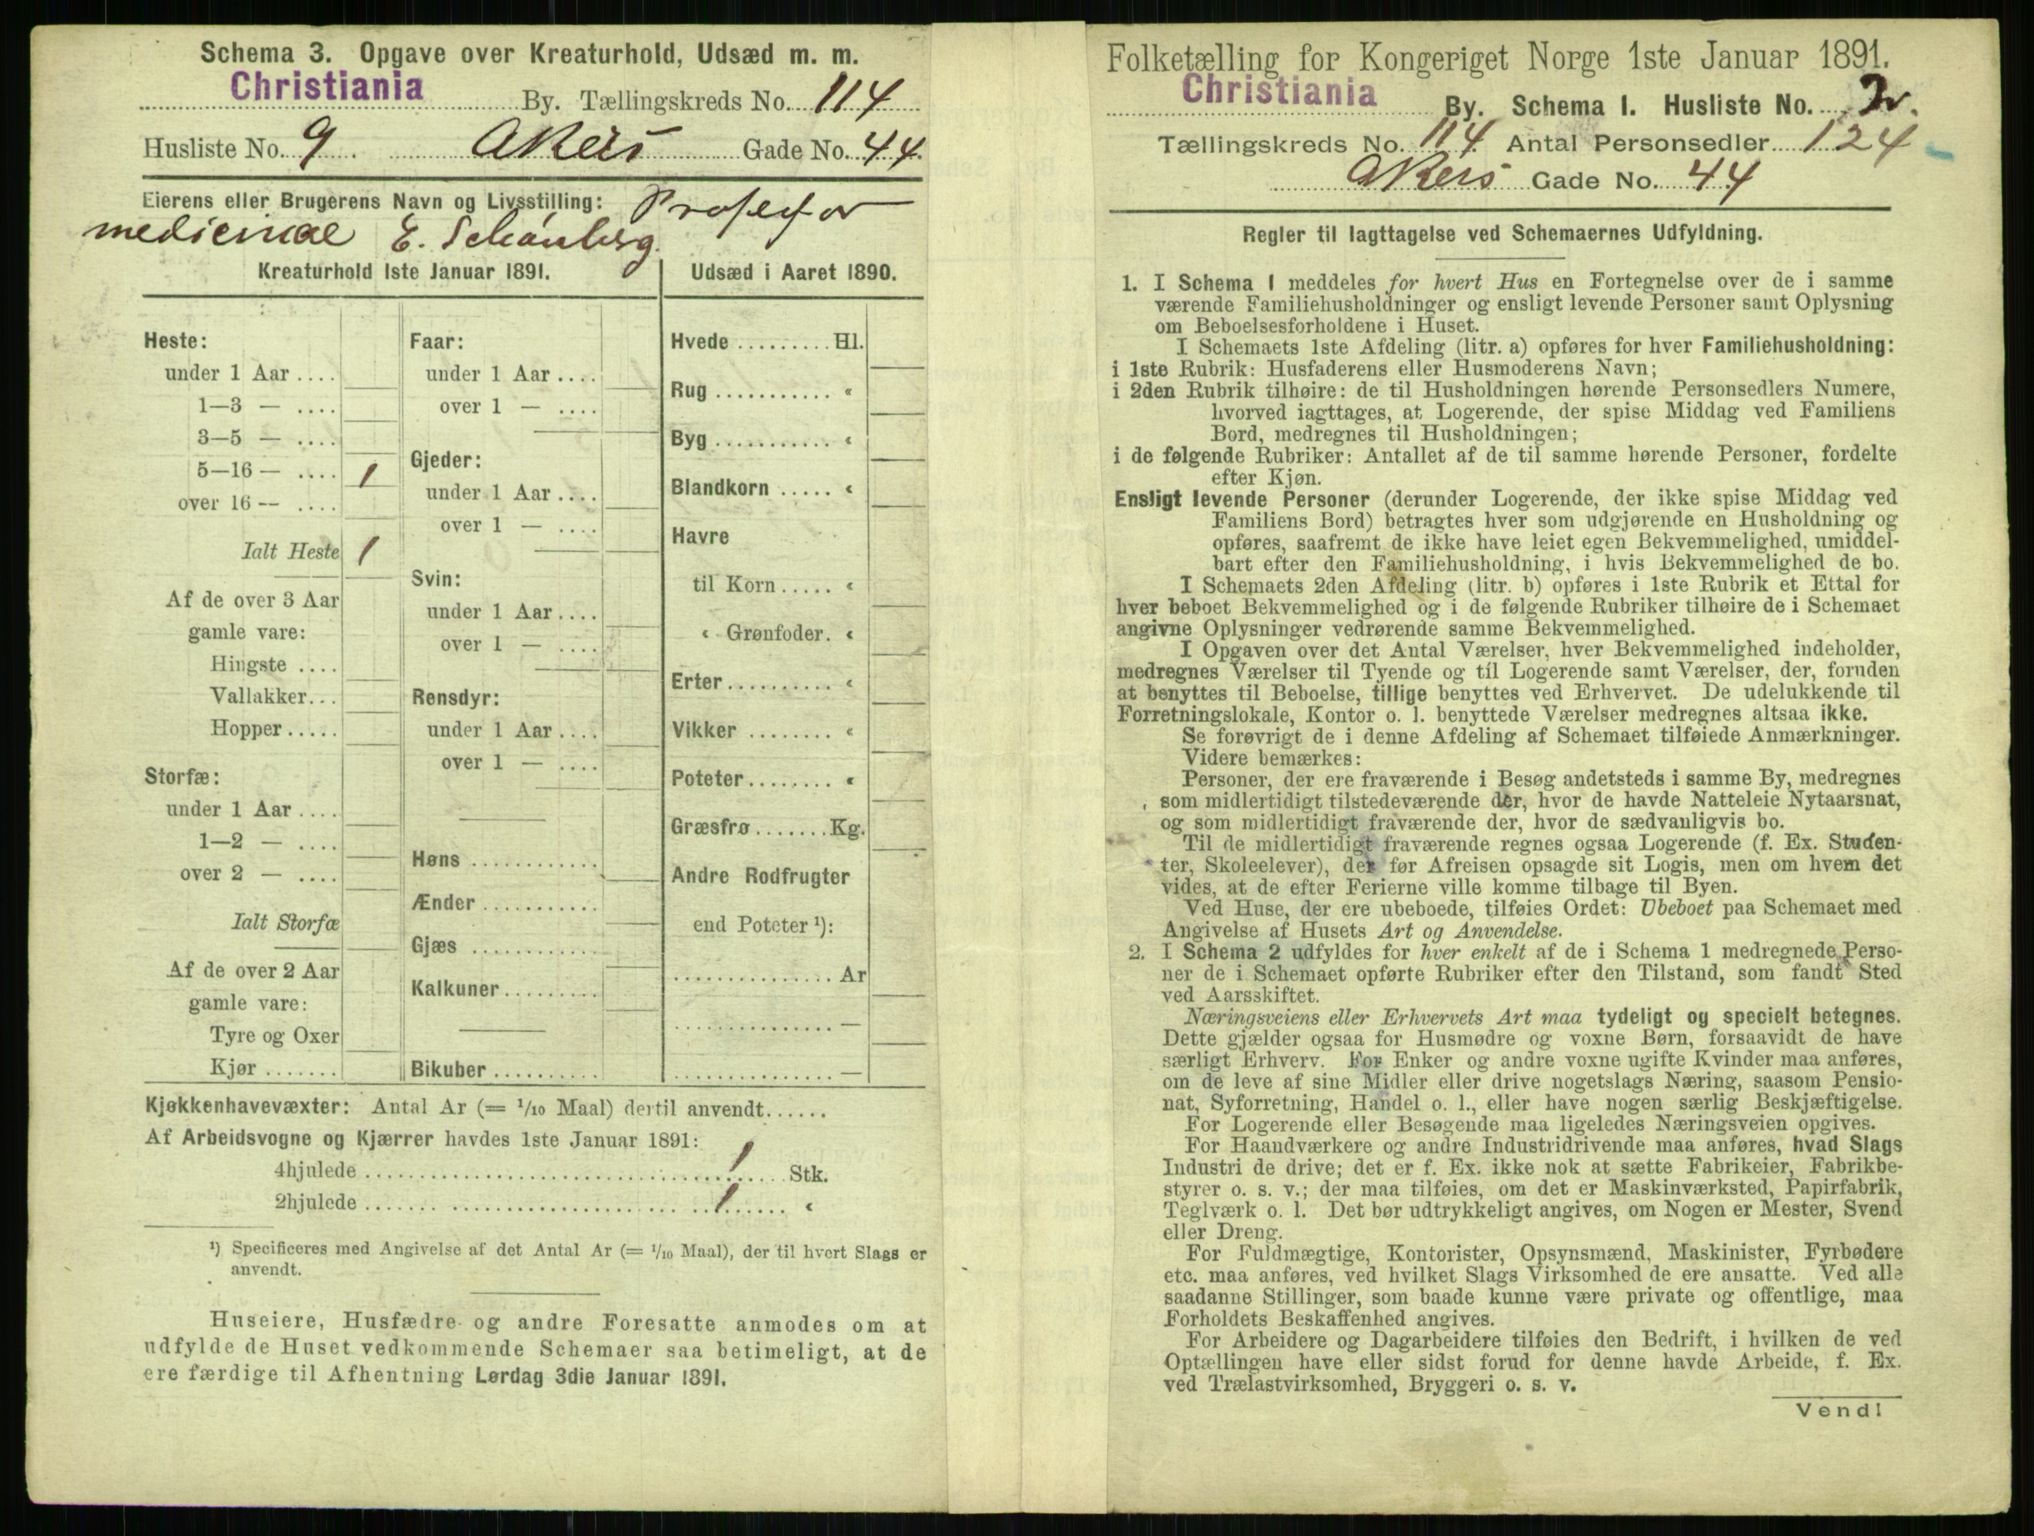 Schema 3. Opgave over Kreaturhold, Udsæd m. m.
Christiania By. Tællingskreds No. 114
Husliste No. 9. Akers Gade No. 44.
Eierens eller Brugerens Navn og Livsstilling: Professor
medicinae E. Schönberg
Kreaturhold 1ste Januar 1891.
Heste:
under 1 Aar ....
1—3 — ....
3—5 — ....
5—16 — .... 1
over 16 — ....
Ialt Heste 1
Af de over 3 Aar
gamle vare:
Hingste ....
Vallakker...
Hopper.....
Storfæ:
under 1 Aar ....
1—2 — ....
over 2 — ....
Ialt Storfæ
Af de over 2 Aar
gamle vare:
Tyre og Oxer
Kjør .......
Faar:
under 1 Aar ....
over 1 — ....
Gjeder:
under 1 Aar ....
over 1 — ....
Svin:
under 1 Aar ....
over 1 — ....
Rensdyr:
under 1 Aar ....
over 1 — ....
Høns ............
Ænder ...........
Gjæs ............
Kalkuner.........
Bikuber ..........
Udsæd i Aaret 1890.
Hvede ......... Hl.
Rug ........... «
Byg ........... «
Blandkorn ..... «
Havre
til Korn ..... «
« Grønfoder. «
Erter.......... «
Vikker ........ «
Poteter ........ «
Græsfrø ....... Kg.
Andre Rodfrugter
end Poteter ¹):
............... Ar
............... —
............... —
Kjøkkenhavevæxter: Antal Ar (= 1/10 Maal) dertil anvendt......
Af Arbeidsvogne og Kjærrer havdes 1ste Januar 1891:
4hjulede .......... 1 Stk.
2hjulede .......... 1 «
¹) Specificeres med Angivelse af det Antal Ar (= 1/10 Maal), der til hvert Slags er
anvendt.
Huseiere, Husfædre og andre Foresatte anmodes om at
udfylde de Huset vedkommende Schemaer saa betimeligt, at de
ere færdige til Afhentning Lørdag 3die Januar 1891.
Folketælling for Kongeriget Norge 1ste Januar 1891.
Christiania By. Schema 1. Husliste No.
Tællingskreds No. 114 Antal Personsedler 124
Akers Gade No. 44
Regler til Iagttagelse ved Schemaernes Udfyldning.
1. I Schema 1 meddeles for hvert Hus en Fortegnelse over de i samme
værende Familiehusholdninger og ensligt levende Personer samt Oplysning
om Beboelsesforholdene i Huset.
I Schemaets 1ste Afdeling (litr. a) opføres for hver Familiehusholdning:
i 1ste Rubrik: Husfaderens eller Husmoderens Navn;
i 2den Rubrik tilhøire: de til Husholdningen hørende Personsedlers Numere,
hvorved iagttages, at Logerende, der spise Middag ved Familiens
Bord, medregnes til Husholdningen;
i de følgende Rubriker: Antallet af de til samme hørende Personer, fordelte
efter Kjøn.
Ensligt levende Personer (derunder Logerende, der ikke spise Middag ved
Familiens Bord) betragtes hver som udgjørende en Husholdning og
opføres, saafremt de ikke have leiet egen Bekvemmelighed, umiddel-
bart efter den Familiehusholdning, i hvis Bekvemmelighed de bo.
I Schemaets 2den Afdeling (litr. b) opføres i 1ste Rubrik et Ettal for
hver beboet Bekvemmelighed og i de følgende Rubriker tilhøire de i Schemaet
angivne Oplysninger vedrørende samme Bekvemmelighed.
I Opgaven over det Antal Værelser, hver Bekvemmelighed indeholder,
medregnes Værelser til Tyende og til Logerende samt Værelser, der, foruden
at benyttes til Beboelse, tillige benyttes ved Erhvervet. De udelukkende til
Forretningslokale, Kontor o. l. benyttede Værelser medregnes altsaa ikke.
Se forøvrigt de i denne Afdeling af Schemaet tilføiede Anmærkninger.
Videre bemærkes:
Personer, der ere fraværende i Besøg andetsteds i samme By, medregnes
som midlertidigt tilstedeværende der, hvor de havde Natteleie Nytaarsnat,
og som midlertidigt fraværende der, hvor de sædvanligvis bo.
Til de midlertidigt fraværende regnes ogsaa Logerende (f. Ex. Studen-
ter, Skoleelever), der før Afreisen opsagde sit Logis, men om hvem det
vides, at de efter Ferierne ville komme tilbage til Byen.
Ved Huse, der ere ubeboede, tilføies Ordet: Ubeboet paa Schemaet med
Angivelse af Husets Art og Anvendelse.
2. I Schema 2 udfyldes for hver enkelt af de i Schema 1 medregnede Perso-
ner de i Schemaet opførte Rubriker efter den Tilstand, som fandt Sted
ved Aarsskiftet.
Næringsveiens eller Erhvervets Art maa tydeligt og specielt betegnes.
Dette gjælder ogsaa for Husmødre og voxne Børn, forsaavidt de have
særligt Erhverv. For Enker og andre voxne ugifte Kvinder maa anføres,
om de leve af sine Midler eller drive nogetslags Næring, saasom Pensio-
nat, Syforretning, Handel o. l., eller have nogen særlig Beskjæftigelse.
For Logerende eller Besøgende maa ligeledes Næringsveien opgives.
For Haandværkere og andre Industridrivende maa anføres, hvad Slags
Industri de drive; det er f. Ex. ikke nok at sætte Fabrikeier, Fabrikbe-
styrer o. s. v.; der maa tilføies, om det er Maskinværksted, Papirfabrik,
Teglværk o. l. Det bør udtrykkeligt angives, om Nogen er Mester, Svend
eller Dreng.
For Fuldmægtige, Kontorister, Opsynsmænd, Maskinister, Fyrbødere
etc. maa anføres, ved hvilket Slags Virksomhed de ere ansatte. Ved alle
saadanne Stillinger, som baade kunne være private og offentlige, maa
Forholdets Beskaffenhed angives.
For Arbeidere og Dagarbeidere tilføies den Bedrift, i hvilken de ved
Optællingen have eller sidst forud for denne havde Arbeide, f. Ex.
ved Trælastvirksomhed, Bryggeri o. s. v.
Vend!